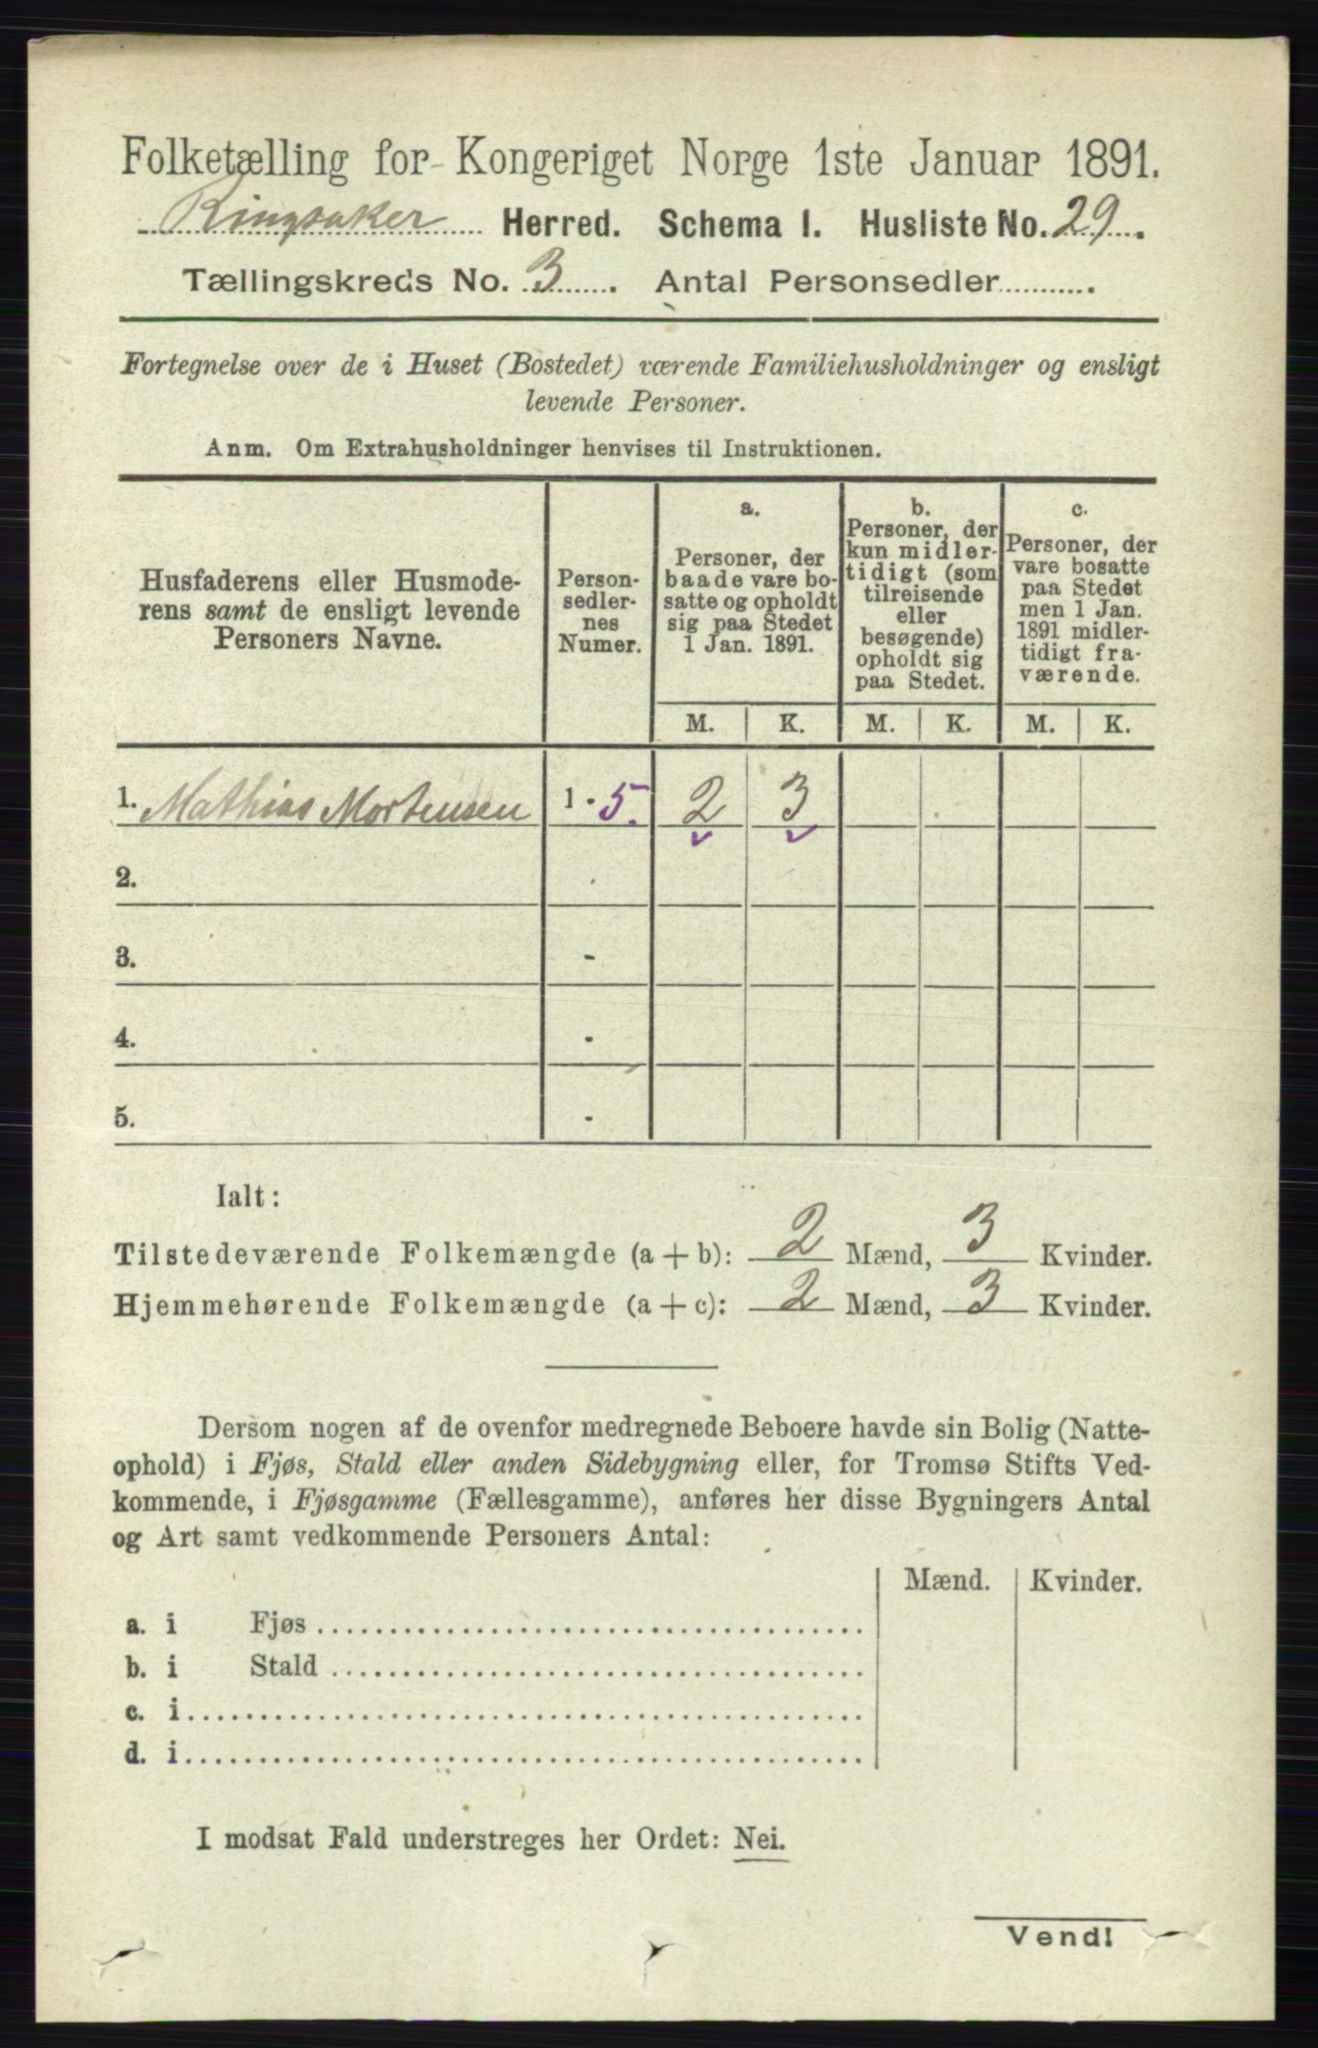 Folketælling for Kongeriget Norge 1ste Januar 1891.
Ringsaker Herred. Schema I. Husliste No. 29.
Tællingskreds No. 3. Antal Personsedler
Fortegnelse over de i Huset (Bostedet) værende Familiehusholdninger og ensligt
levende Personer.
Anm. Om Extrahusholdninger henvises til Instruktionen.
Husfaderens eller Husmode-
rens samt de ensligt levende
Personers Navne.
Person-
sedler-
nes
Numer.
a.
Personer, der
baade vare bo-
satte og opholdt
sig paa Stedet
1 Jan. 1891.
b.
Personer, der
kun midler-
tidigt (som
tilreisende
eller
besøgende)
opholdt sig
paa Stedet.
c.
Personer, der
vare bosatte
paa Stedet
men 1 Jan.
1891 midler-
tidigt fra-
værende.
M. K. M. K. M. K.
1. Mathias Mortensen 1 - 5. 2 3
2.
3. -
4. -
5. -
Ialt:
Tilstedeværende Folkemængde (a + b): 2 Mænd, 3 Kvinder.
Hjemmehørende Folkemængde (a + c): 2 Mænd, 3 Kvinder.
Dersom nogen af de ovenfor medregnede Beboere havde sin Bolig (Natte-
ophold) i Fjøs, Stald eller anden Sidebygning eller, for Tromsø Stifts Ved-
kommende, i Fjøsgamme (Fællesgamme), anføres her disse Bygningers Antal
og Art samt vedkommende Personers Antal:
Mænd. Kvinder.
a. i Fjøs
b. i Stald
c. i
d. i
I modsat Fald understreges her Ordet: Nei.
Vend!